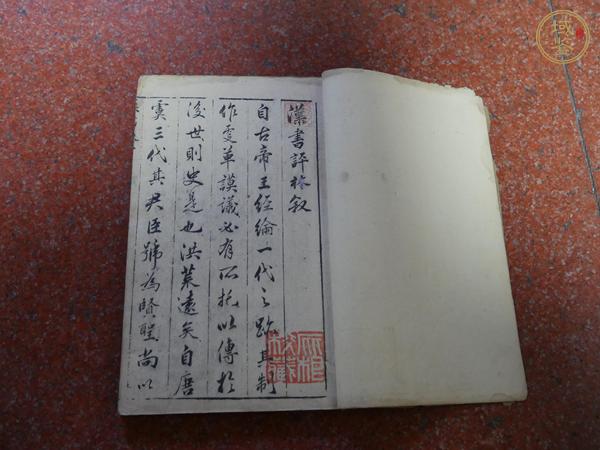 漢書評林叙
自古帝王經綸一代之跡其制
作更革謨議必有所托以傳於
後世則史是也洪荒遠矣自唐
虞三代其君臣號為賢聖尚以